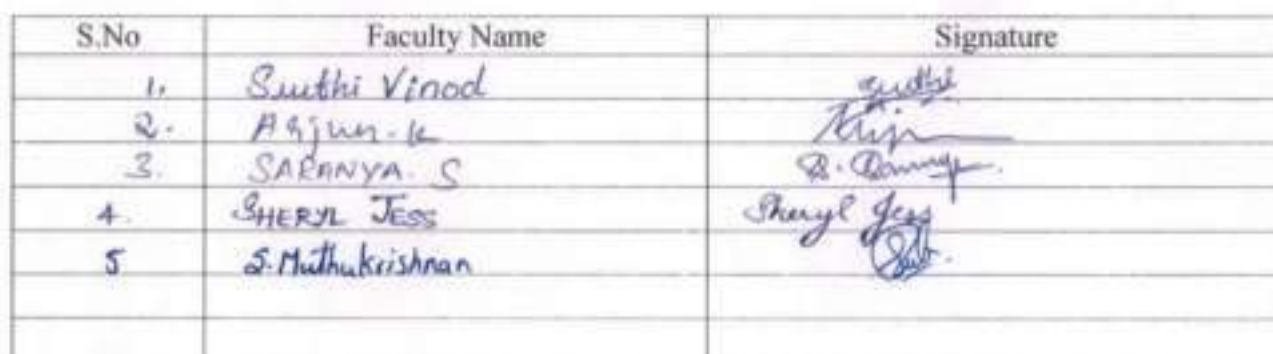 S.No Faculty Name Signature
1. Sruthi Vinod Sruthi
2. Arjun.k
3. SARANYA. S
4. SHERYL JESS Sheryl Jess
5 S.Muthukrishnan